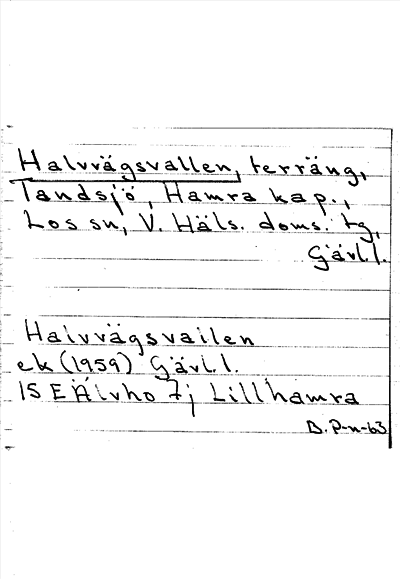 Halvvägsvallen, terräng,
Tandsjö, Hamra kap.,
Los sn, V. Häls. doms. tg,
Gävl.l.
Halvvägsvallen
ek (1959) Gävl.l.
15 E Älvho 7j Lillhamra
B. P-n-63